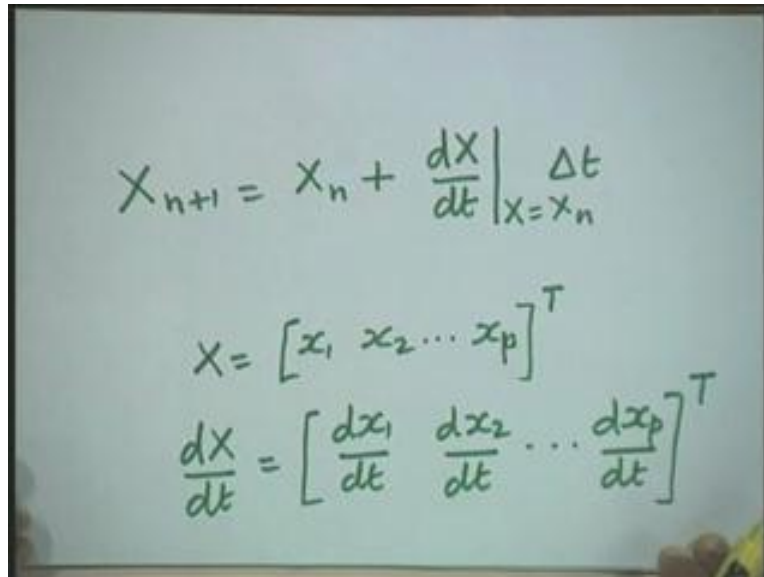 X_{n+1} = X_n + \frac{dX}{dt}|_{X=X_n} Δt
X = [x_1 x_2 ... x_p]^T
\frac{dX}{dt} = [\frac{dx_1}{dt} \frac{dx_2}{dt} ... \frac{dx_p}{dt}]^T